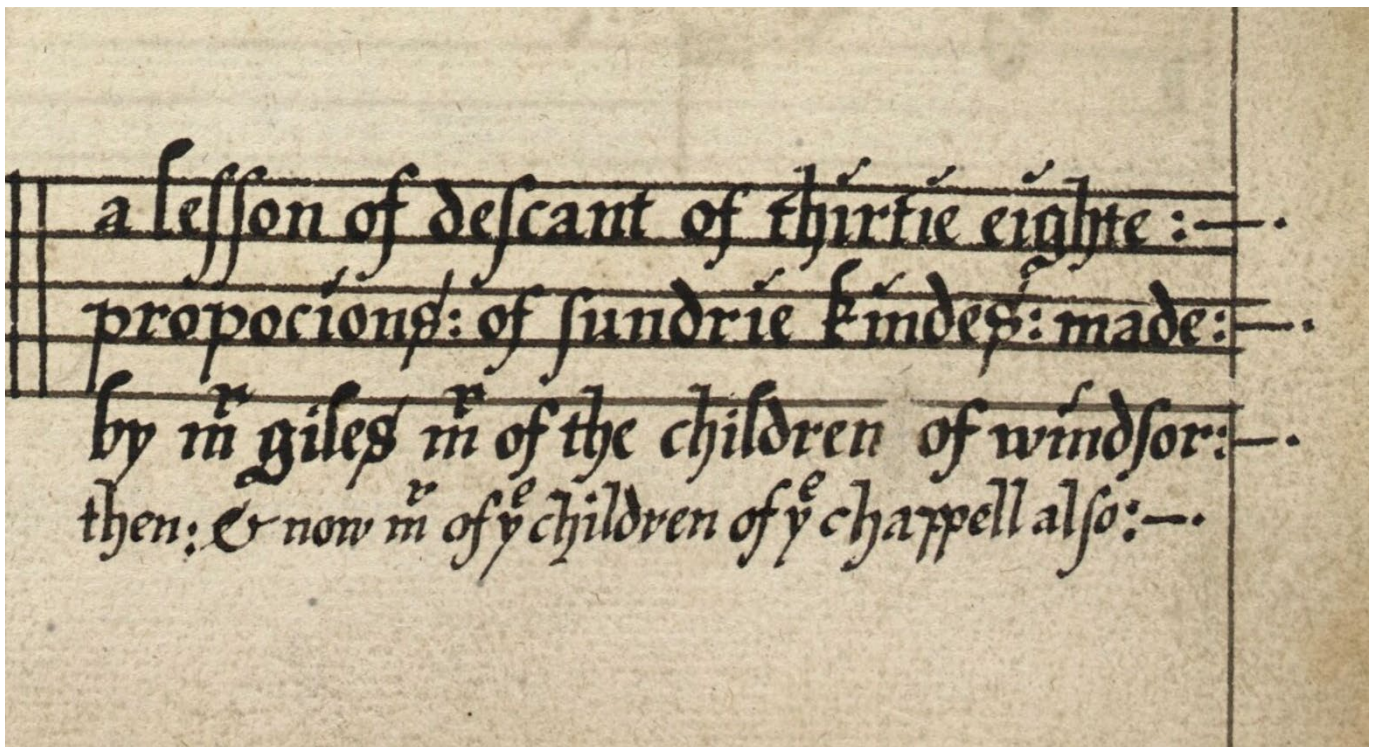 a leſſon of deſcant of thirtie eighte :—.
propocions: of ſundrie kindes: made:—.
by m̅ʳ giles m̅ʳ of the children of windſor:—.
then: & now m̅ʳ of yᵉ children of yᵉ chappell alſo:—.